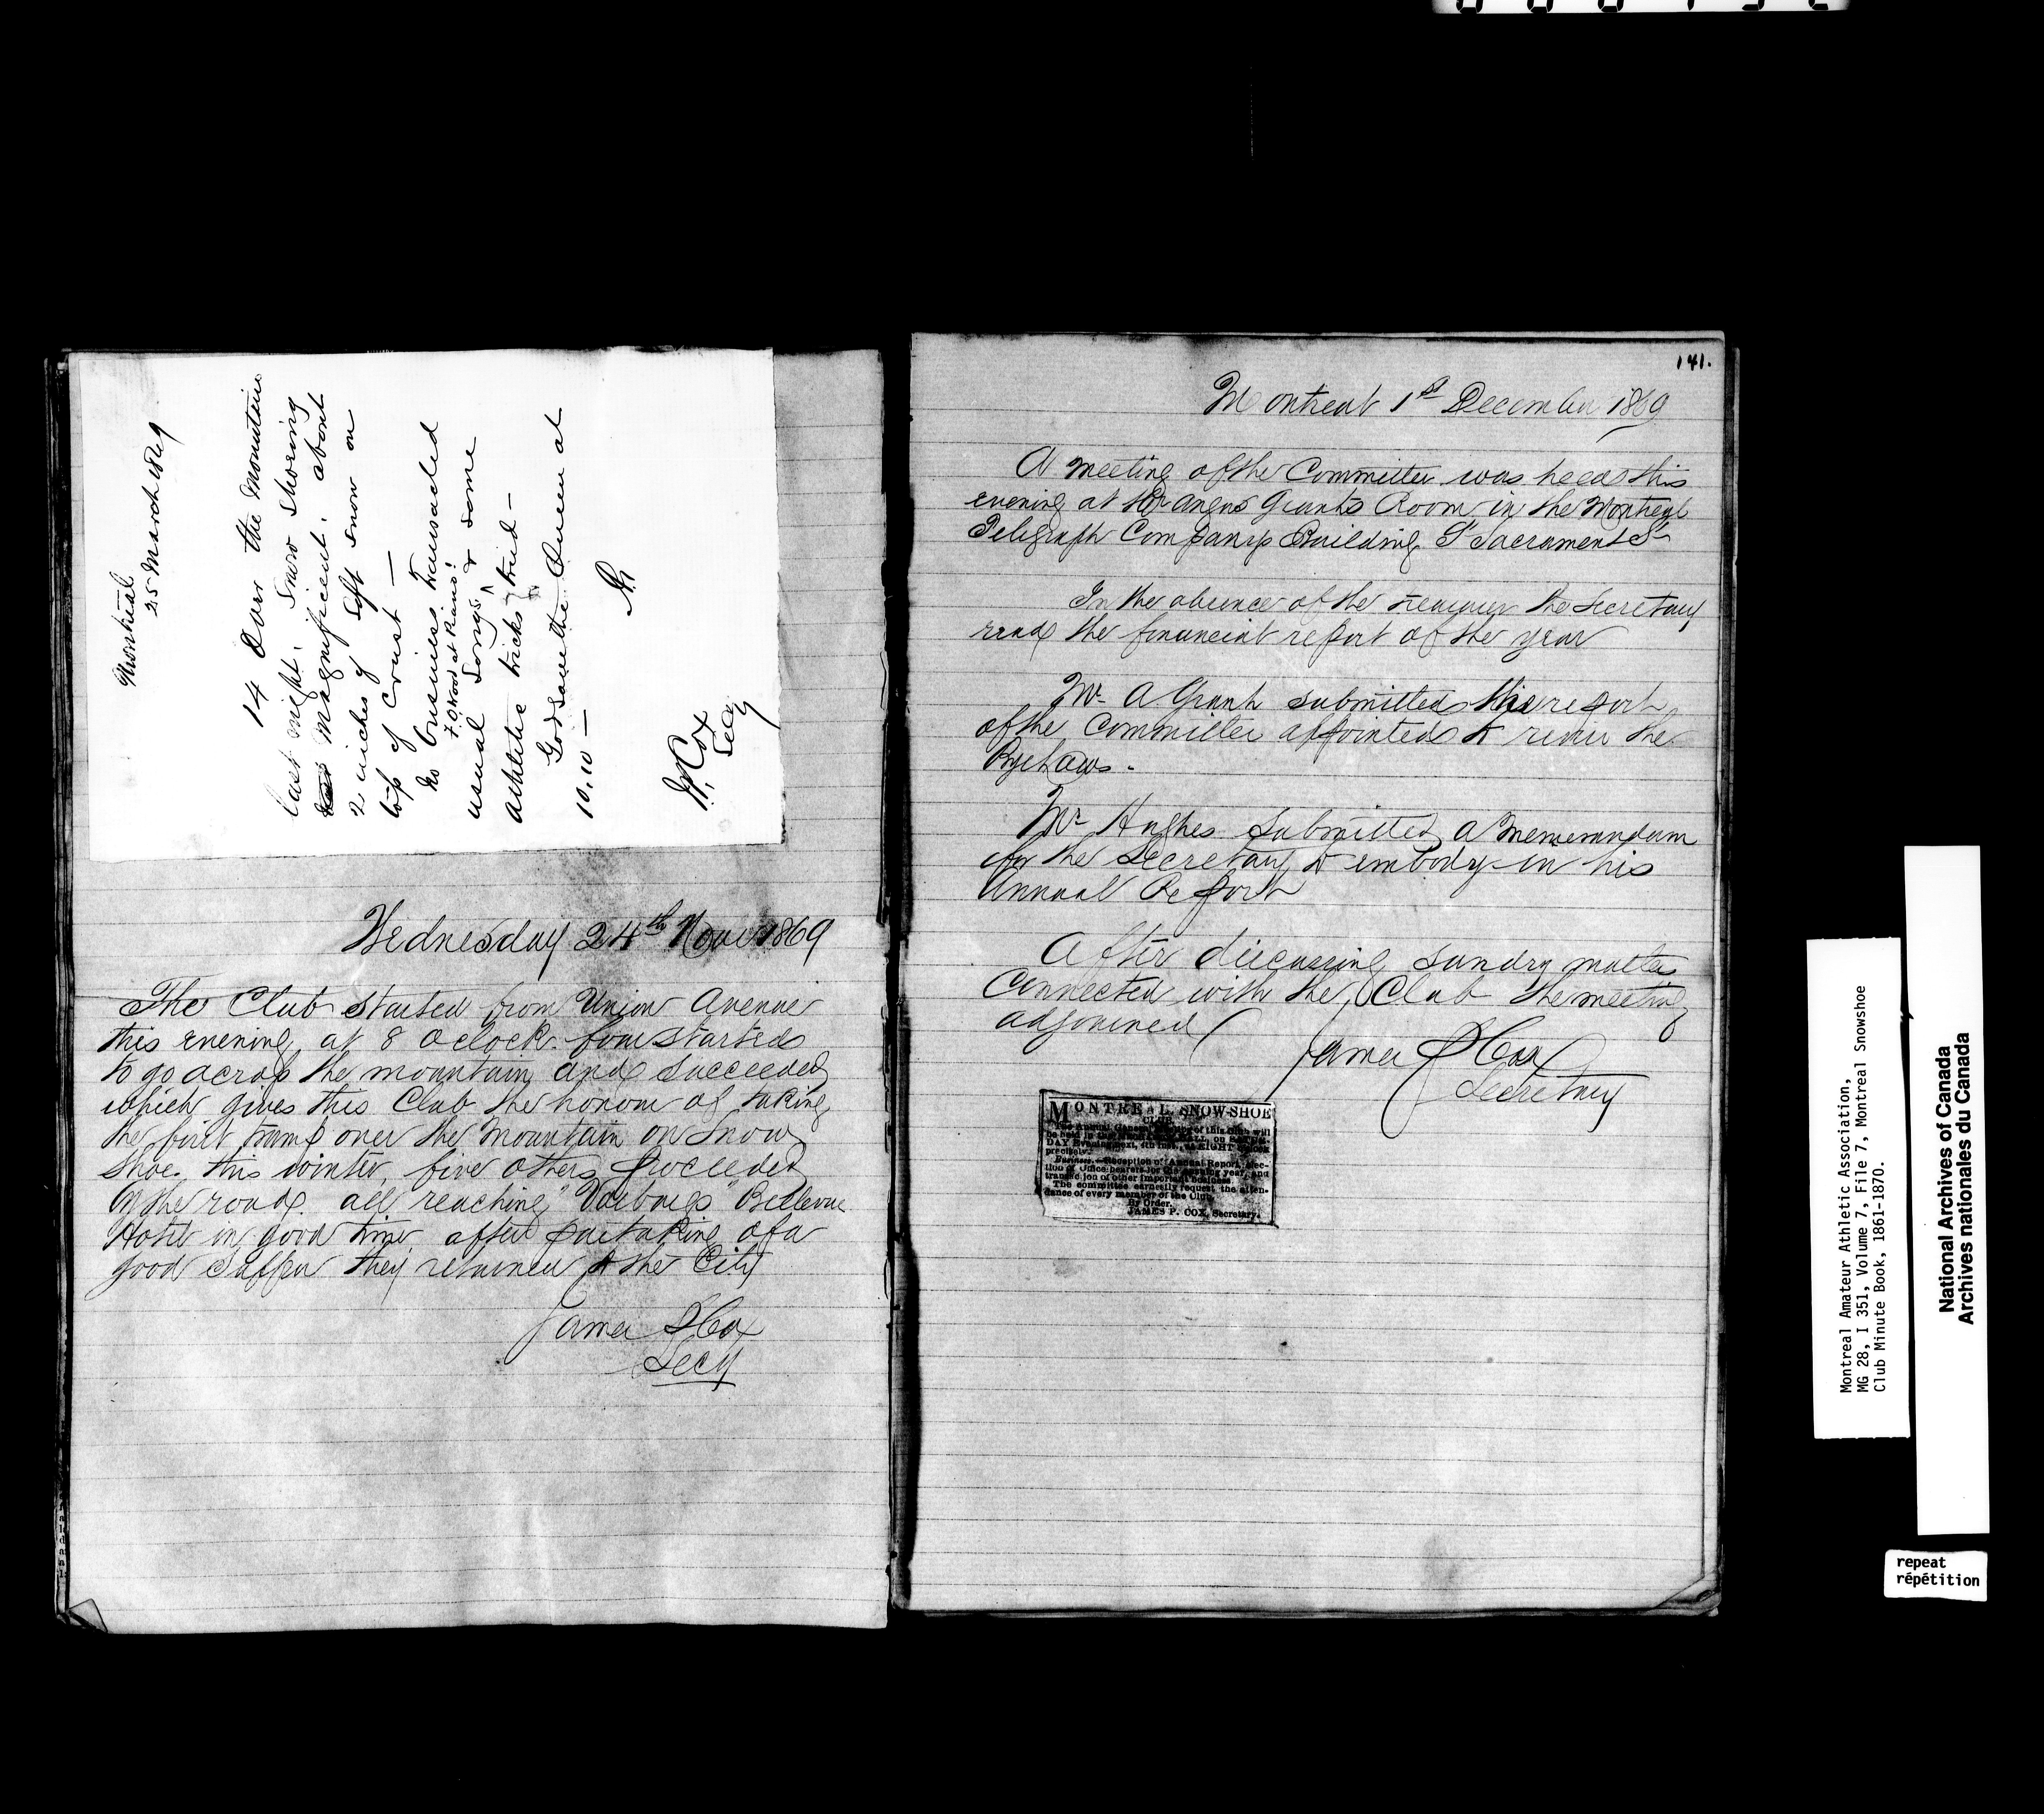 Montreal
25 March 1869
14 Over the Mountain
last night. Snow Shoeing
Magnificent. about
2 inches of Soft Snow on
top of Crust —
No business transacted
F.O. Wood at Piano!
usual Songs & some
athletic tricks tried —
God Save the Queen at
10.10 —
J.P. Cox
Secy
Wednesday 24th Novr 1869
The Club started from Union Avenue
this evening at 8 O clock. four started
to go across the mountain and succeeded
which gives this Club the honour of taking
the first tramp over the Mountain on Snow
Shoe this winter, five others proceeded
by the road. all reaching "Vosburgs" Bellevue
Hotel in good time after partaking of a
good Supper they returned to the City
James P Cox
Secy
141.
Montreal 1st December 1869
A meeting of the Committee was held this
evening at Mr Angus Grants Room in the Montreal
Telegraph Companys Building St Sacrament St
In the absence of the Treasurer the Secretary
read the financial report of the year
Mr A Grant submitted the report
of the Committee appointed to revise the
Bye Laws.
Mr Hughes Submitted a Memorandum
for the Secretary to embody in his
Annual Report
After discussing sundry matters
Connected with the Club the meeting
adjourned
James P Cox
Secretary
MONTREAL SNOW-SHOE
CLUB.
The Annual General Meeting of this Club will
be held in the on SATUR-
DAY Evening next, 4th inst., at EIGHT o'clock
precisely.
Business.—Reception of Annual Report, Elec-
tion of Office-bearers for the ensuing year, and
transaction of other important business
The committee earnestly request the atten-
dance of every member of the Club.
By Order,
JAMES P. COX, Secretary.
Montreal Amateur Athletic Association,
MG 28, I 351, Volume 7, File 7, Montreal Snowshoe
Club Minute Book, 1861-1870.
National Archives of Canada
Archives nationales du Canada
repeat
répétition